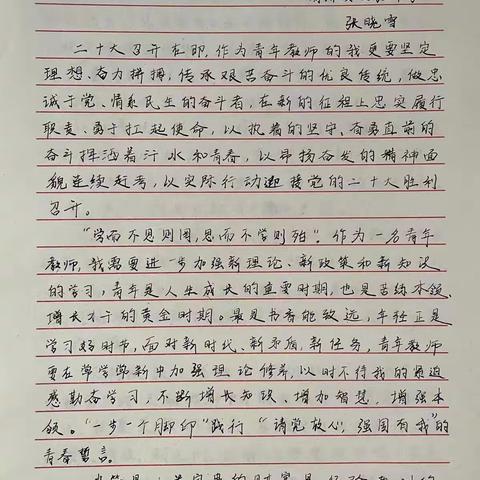 张晓雪
二十大召开在即,作为青年教师的我更要坚定
理想、奋力拼搏,传承艰苦奋斗的优良传统,做忠
诚于党、情系民生的奋斗者,在新的征程上忠实履行
职责、勇于扛起使命,以执着的坚守、奋勇直前的
奋斗挥洒着汗水和青春,以昂扬奋发的精神面
貌连续赶考,以实际行动迎接党的二十大胜利
召开。
“学而不思则罔,思而不学则殆”。作为一名青年
教师,我需要进一步加强新理论、新政策和新知识
的学习,青年是人生成长的重要时期,也是苦练本领、
增长才干的黄金时期。最是书香能致远,年轻正是
学习好时节,面对新时代、新矛盾、新任务,青年教师
要在常学常新中加强理论修养,以时不待我的紧迫
感勤奋学习,不断增长知识、增加智慧,增强本
领。“一步一个脚印”践行“请党放心,强国有我”的
青春誓言。